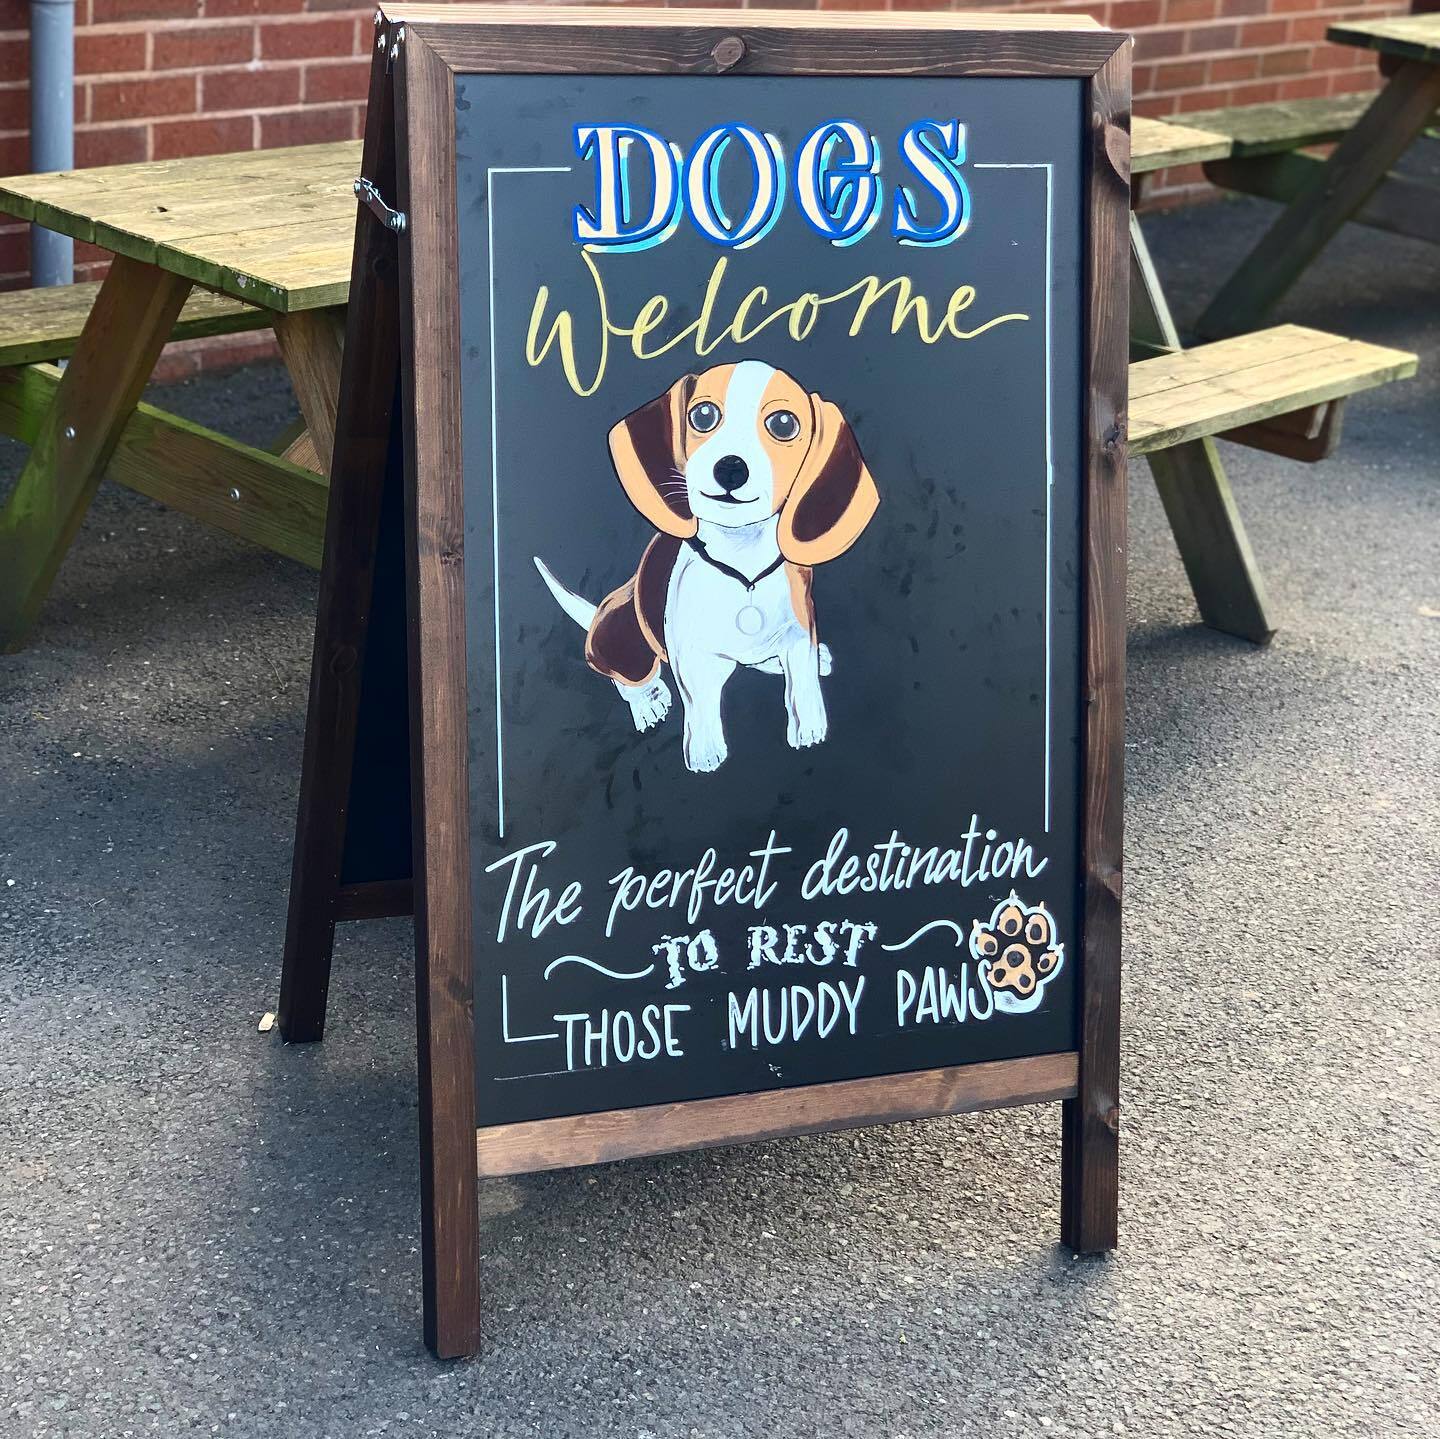 DOGS
Welcome
The perfect destination
TO REST
THOSE MUDDY PAWS